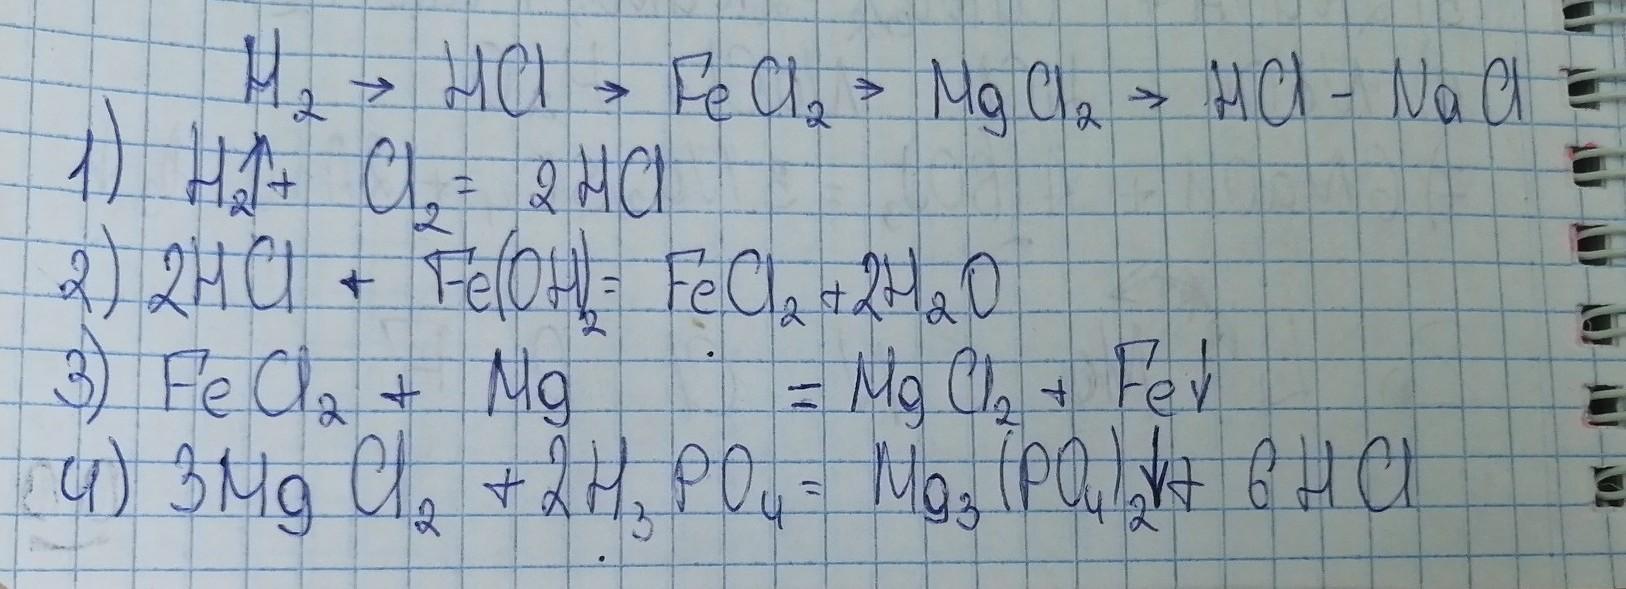 H₂ → HCl → FeCl₂ → MgCl₂ → HCl - NaCl
1) H₂↑ + Cl₂ = 2HCl
2) 2HCl + Fe(OH)₂ = FeCl₂ + 2H₂O
3) FeCl₂ + Mg = MgCl₂ + Fe↓
4) 3MgCl₂ + 2H₃PO₄ = Mg₃(PO₄)₂↓ + 6HCl